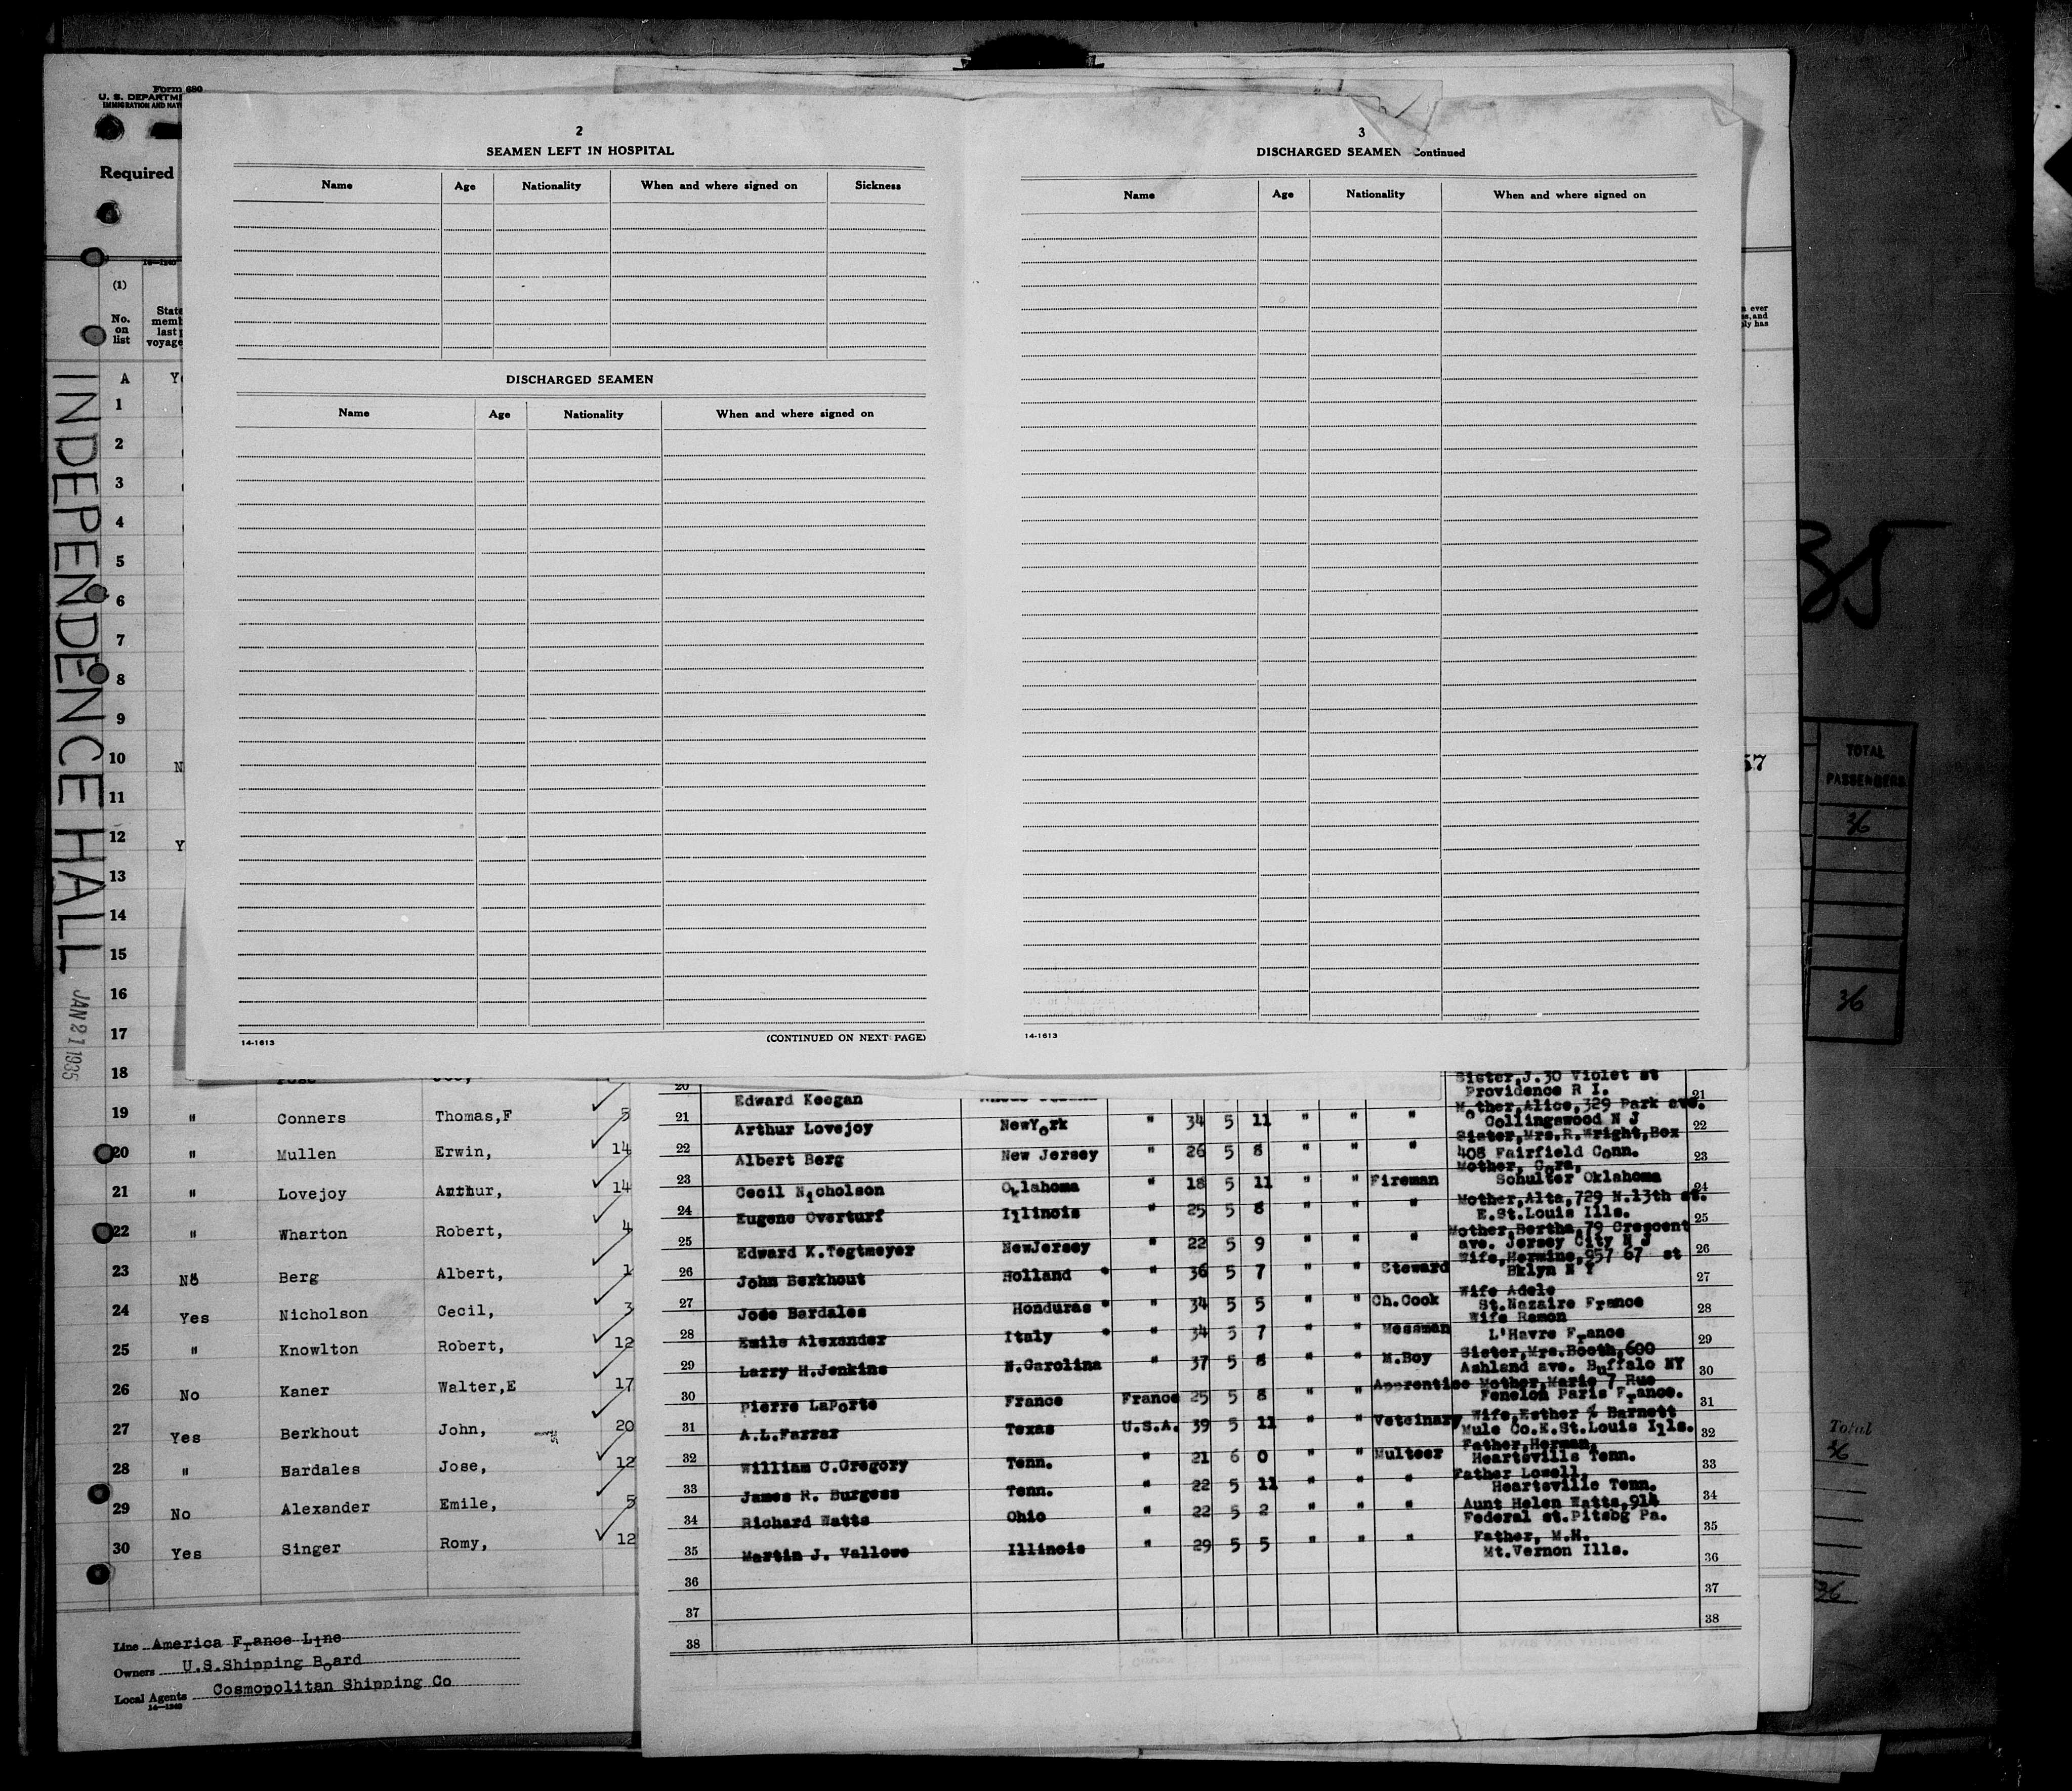 Form 680
U. S. DEPARTME
IMMIGRATION AND NAT
Required
(1)
No. on list
State
memb
last
voyage
INDEPENDENCE HALL
JAN 21 1935
2
SEAMEN LEFT IN HOSPITAL
Name Age Nationality When and where signed on Sickness
DISCHARGED SEAMEN
Name Age Nationality When and where signed on
14-1613 (CONTINUED ON NEXT PAGE)
3
DISCHARGED SEAMEN Continued
Name Age Nationality When and where signed on
14-1613
A
1
2
3
4
5
6
7
8
9
10 N
11
12 Y
13
14
15
16
17
18
19 " Conners Thomas,F 5
20 " Mullen Erwin, 14
21 " Lovejoy Arthur, 14
22 " Wharton Robert, 4
23 No Berg Albert, 1
24 Yes Nicholson Cecil, 3
25 " Knowlton Robert, 12
26 No Kaner Walter,E 17
27 Yes Berkhout John, 20
28 " Bardales Jose, 12
29 No Alexander Emile, 5
30 Yes Singer Romy, 12
Line America France Line
Owners U.S.Shipping Board
Local Agents Cosmopolitan Shipping Co
14-1240
20 Edward Keegan Sister,J.30 Violet st
Providence R I. 21
21 Arthur Lovejoy NewYork " 34 5 11 " " " Mother,Alice,329 Park ave.
Collingswood N J 22
22 Albert Berg New Jersey " 26 5 8 " " " Sister,Mrs.R.Wright,Box
408 Fairfield Conn. 23
23 Cecil Nicholson Oklahoma " 18 5 11 " " Fireman Mother, Cora,
Schulter Oklahoma 24
24 Eugene Overturf Illinois " 25 5 8 " " " Mother,Alta,729 N.13th st.
E.St.Louis Ills. 25
25 Edward K.Tegtmeyer NewJersey " 22 5 9 " " " Mother,Bertha,79 Crescent
ave. Jersey City N J 26
26 John Berkhout Holland " 36 5 7 " " Steward Wife,Hermine,957 67 st
Bklyn N Y 27
27 Jose Bardales Honduras " 34 5 5 " " Ch.Cook Wife Adele
St.Nazaire France 28
28 Emile Alexander Italy " 34 5 7 " " Messman Wife Ramon
L'Havre France 29
29 Larry H.Jenkins N.Carolina " 37 5 8 " " M.Boy Sister,Mrs.Booth,600
Ashland ave. Buffalo NY 30
30 Pierre LaPorte France France 25 5 8 " " Apprentice Mother,Marie 7 Rue
Fenelon Paris France. 31
31 A.L.Farrar Texas U.S.A. 39 5 11 " " Veteinary Wife,Esther % Barnett
Mule Co.E.St.Louis Ills. 32
32 William C.Gregory Tenn. " 21 6 0 " " Multeer Father,Herman,
Heartsville Tenn. 33
33 James R. Burgess Tenn. " 22 5 11 " " " Father Lowell,
Heartsville Tenn. 34
34 Richard Watts Ohio " 22 5 2 " " " Aunt Helen Watts,914
Federal st.Pitsbg Pa. 35
35 Martin J. Vallowe Illinois " 29 5 5 " " " Father, M.H.
Mt.Vernon Ills. 36
36 37
37 38
38
35
57
TOTAL
PASSENGERS
36
36
Total
36
36